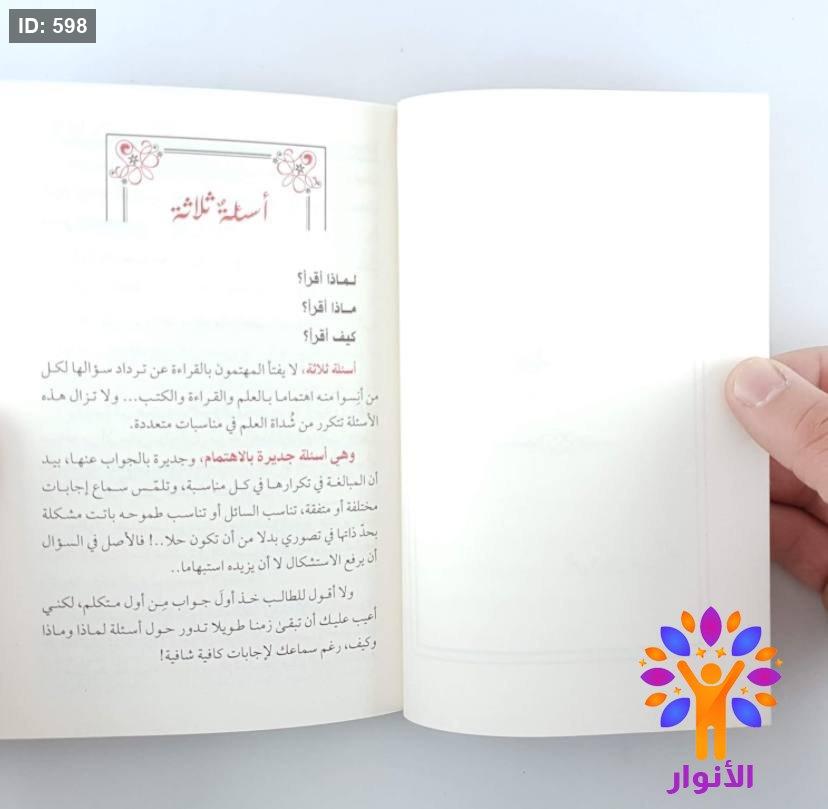 ID: 598
أسئلةٌ ثلاثة
لماذا أقرأ؟
ماذا أقرأ؟
كيف أقرأ؟
أسئلة ثلاثة، لا يفتأ المهتمون بالقراءة عن ترداد سؤالها لكل
من أنِسوا منه اهتماما بالعلم والقراءة والكتب... ولا تزال هذه
الأسئلة تتكرر من شُداة العلم في مناسبات متعددة.
وهي أسئلة جديرة بالاهتمام، وجديرة بالجواب عنها، بيد
أن المبالغة في تكرارها في كل مناسبة، وتلمّس سماع إجابات
مختلفة أو متفقة، تناسب السائل أو تناسب طموحه باتت مشكلة
بحدّ ذاتها في تصوري بدلا من أن تكون حلا..! فالأصل في السؤال
أن يرفع الاستشكال لا أن يزيده استبهاما..
ولا أقول للطالب خذ أولَ جواب مِن أول متكلم، لكني
أعيب عليك أن تبقىٰ زمنا طويلا تدور حول أسئلة لماذا وماذا
وكيف، رغم سماعك لإجابات كافية شافية!
الأنوار